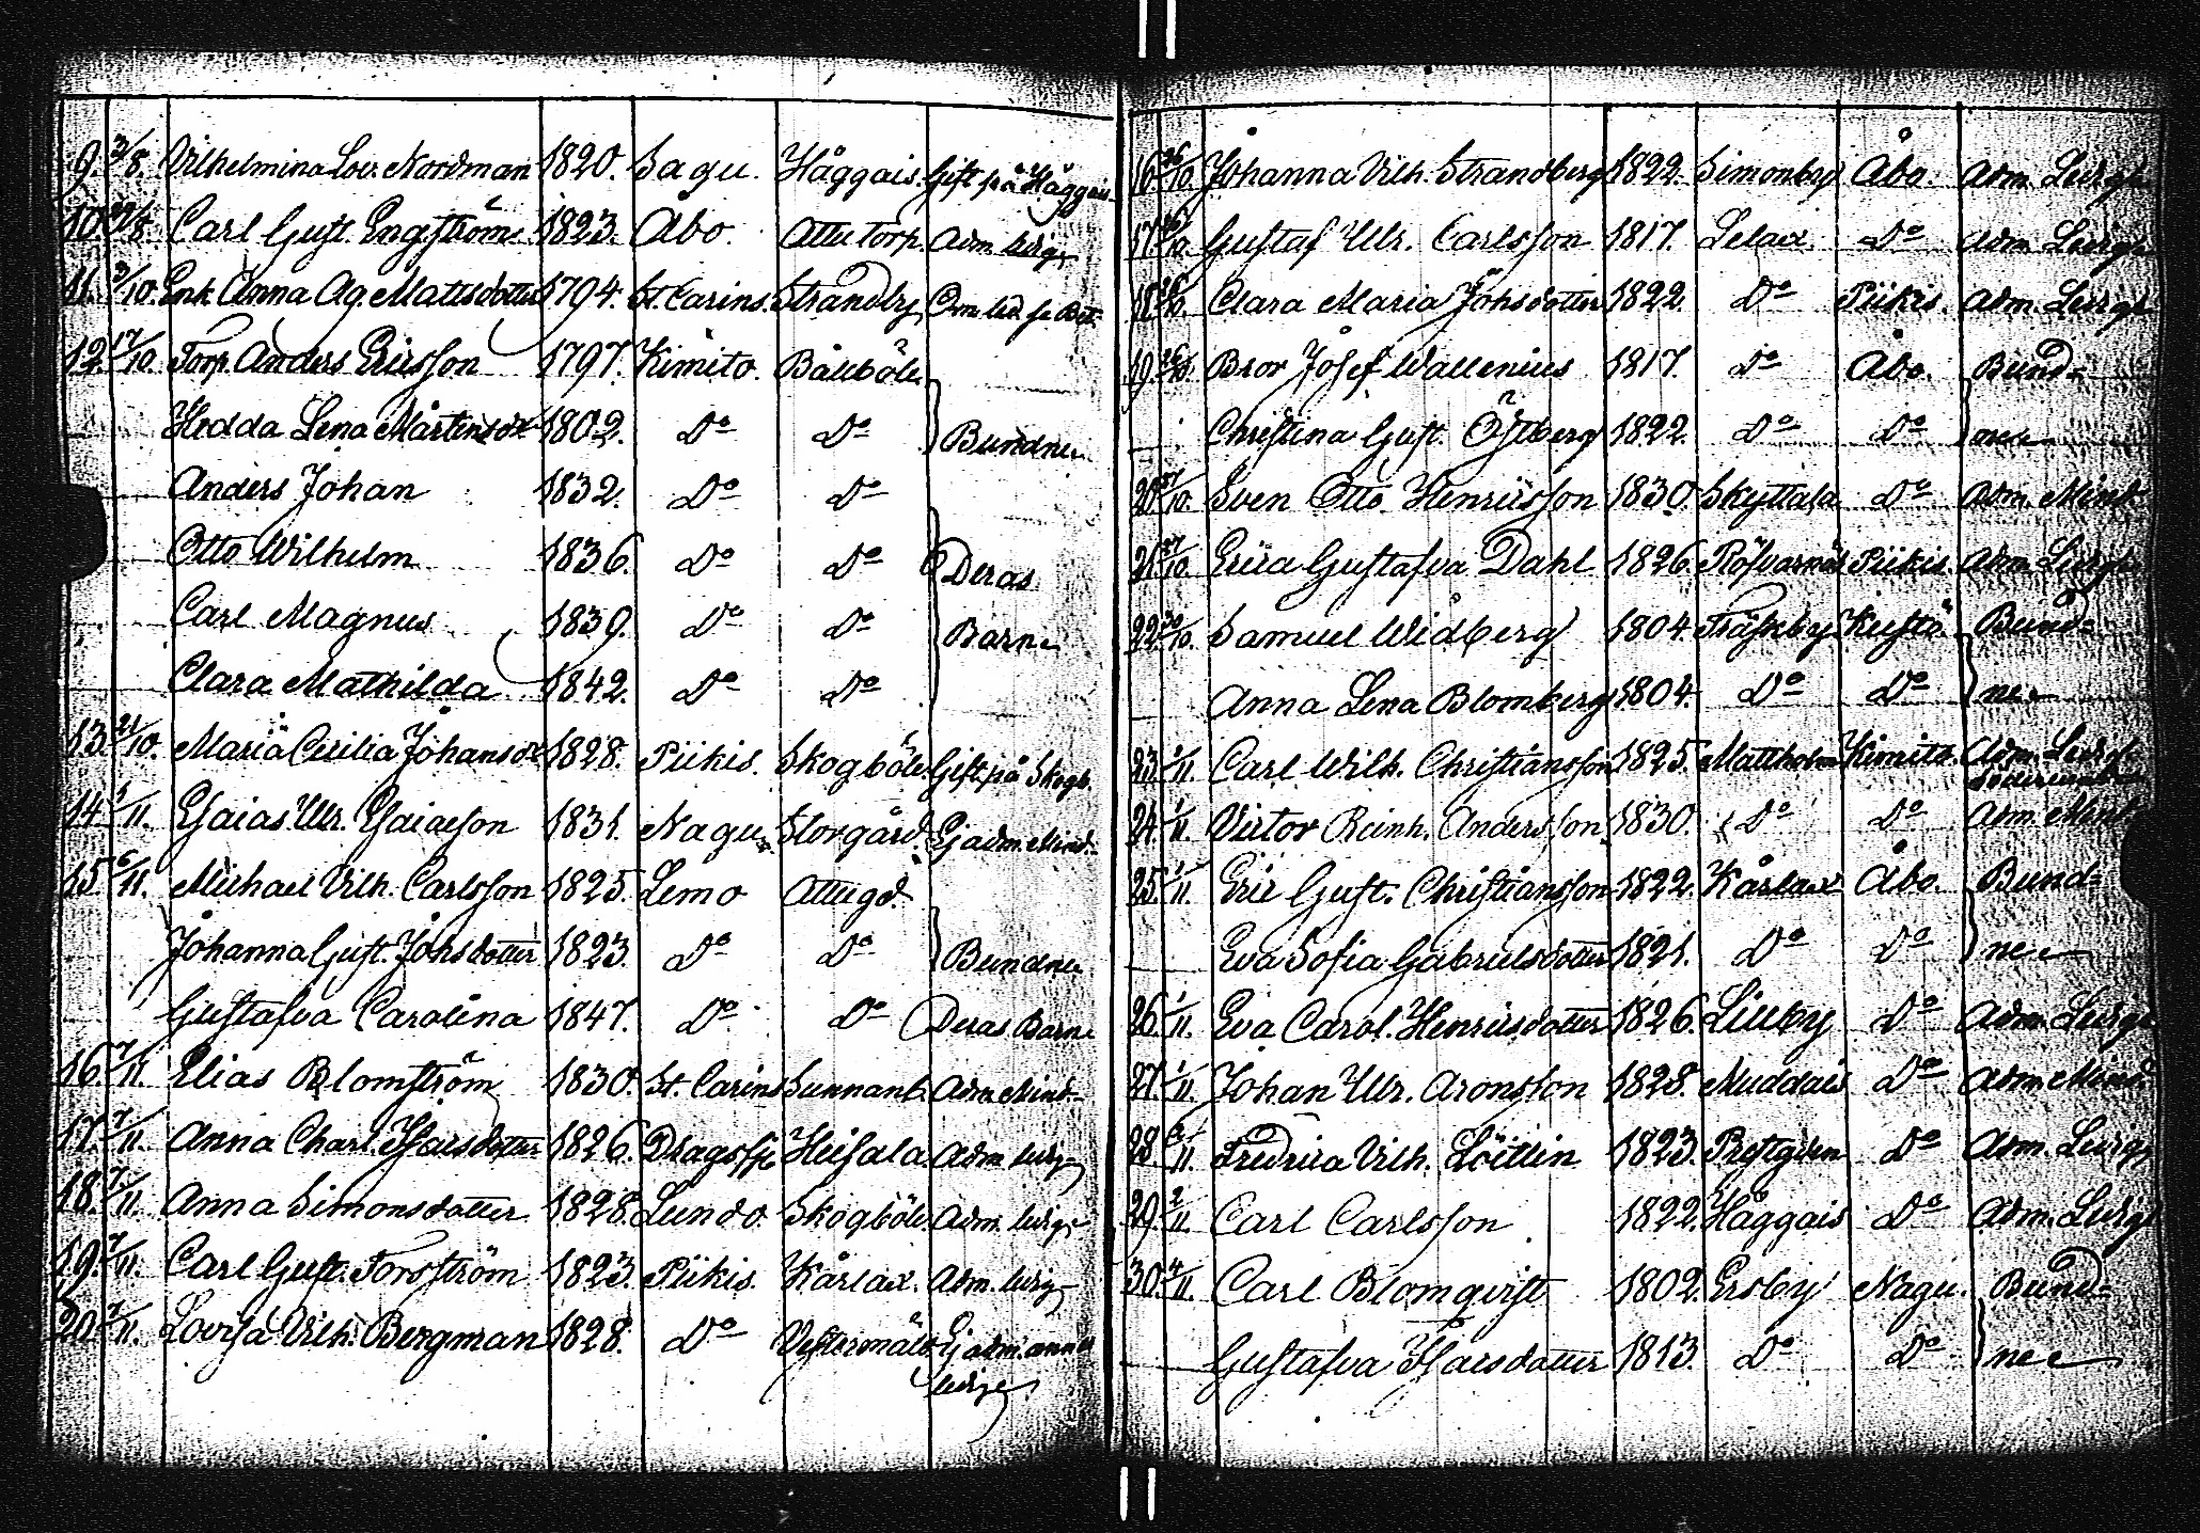 9. 3/8. Vilhelmina Lov. Nordman 1820. Sagu. Håggais. Gift på Håggais
10. /8. Carl Gust. Engström 1823. Åbo. Attu torp. Adm. ledig
11. 3/10. Enk. Anna Ag. Mattsdotter 1794. St. Carins. Strandby
12. 17/10. Torp. Anders Ericsson 1797. Kimito. Båleböle
Hedda Lena Mårtensdr 1802. Do Do Bundne
Anders Johan 1832. Do Do
Otto Wilhelm 1836. Do Do Deras
Carl Magnus 1839. Do Do Barn
Clara Mathilda 1842. Do Do
13. 21/10. Maria Cecilia Johansdr 1828. Piikis. Skogböle Gift på Skogb.
14. 5/11. Esaias Ulr. Esaiason 1831. Nagu Storgård. Ej adm. Mind.
15. 6/11. Michael Vilh. Carlsson 1825. Lemo Attugd.
Johanna Gust. Johsdotter 1823. Do Do Bundne
Gustafva Carolina 1847. Do Do Deras Barn
16. 7/11. Elias Blomström 1830. St. Carins Sunnanb. Adm. Mind.
17. 7/11. Anna Charl. Isacsdotter 1826. Dragsfj. Heisala Adm. ledig
18. 7/11. Anna Simonsdotter 1828. Lundo. Skogböle Adm. ledig
19. 7/11. Carl Gust. Forsström 1823. Piikis. Kårlax. Adm. ledig
20. 7/11. Lovisa Vilh. Bergman 1828. Do Vestermälö Ej adm. annat
ledig
16. 26/10. Johanna Vilh. Strandberg 1822. Simonby Åbo. Adm. Ledig
17. 26/10. Gustaf Ulr. Carlsson 1817. Lelax. Do Adm. Ledig
18. 26/10. Clara Maria Johsdotter 1822. Do Piikis. Adm. Ledig
19. 26/10. Bror Josef Wallenius 1817. Do Åbo. Bund-
Christina Gust. Östberg 1822. Do Do ne
20. 27/10. Sven Otto Henricsson 1830. Skyttala Do Adm. Mind.
21. 27/10. Erica Gustafva Dahl 1826. Röfvarnäs Piikis. Adm. Ledig
22. 30/10. Samuel Widberg 1804. Träskby Kustö. Bund-
Anna Lena Blomberg 1804. Do Do ne
23. 1/11. Carl Wilh. Christiansson 1825. Mattholm Kimito. Adm. Ledig
24. 1/11. Victor Reinh. Andersson 1830. Do Do Adm. Mind.
25. 1/11. Eric Gust. Christiansson 1822. Kårlax Åbo. Bund-
Eva Sofia Gabrielsdotter 1821. Do Do ne
26. 1/11. Eva Carol. Henricsdotter 1826. Lilleby Do Adm. Ledig
27. 1/11. Johan Ulr. Aronsson 1828. Muddais Do Adm. Mind.
28. 2/11. Fredrica Vilh. Löitlin 1823. Prestgden Do Adm. Ledig
29. 2/11. Carl Carlsson 1822. Håggais Do Adm. Ledig
30. 4/11. Carl Blomqvist 1802. Ersby Nagu. Bund-
Gustafva Isacsdotter 1813. Do Do ne